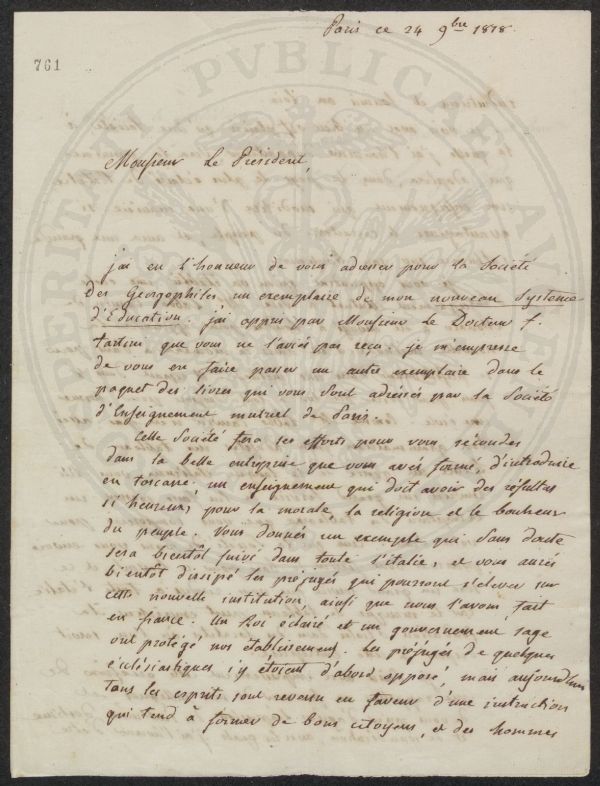 Paris ce 24 9bre 1818.
761
PROSPERITATI PVBLICAE AVGENDAE
Monsieur Le Président,
j'ai eu l'honneur de vous adresser pour la Société
des Georgophiles, un exemplaire de mon nouveau Systeme
d'Education. j'ai appris par Monsieur Le Docteur f.
tartini que vous ne l'aviés pas reçu. je m'empresse
de vous en faire passer un autre exemplaire dans le
paquet des livres qui vous sont adressés par la Société
d'Enseignement mutuel de Paris.
Cette Société fera ses efforts pour vous seconder
dans la belle entreprise que vous avés formé, d'introduire
en toscane, un enseignement qui doit avoir des résultats
si heureux, pour la morale, la religion et le bonheur
du peuple. Vous donnés un exemple qui sans doute
sera bientôt suivi dans toute l'italie, et vous aurés
bientôt dissipé les préjugés qui pourront s'elever sur
cette nouvelle institution, ainsi que nous l'avons fait
en france. Un Roi éclairé et un gouvernement sage
ont protégé nos établissement. Les préjugés de quelques
ecclésiastiques s'y étoient d'abord opposé, mais aujourd'hui
tous les esprits sont revenu en faveur d'une instruction
qui tend à former de bons citoyens, et des hommes